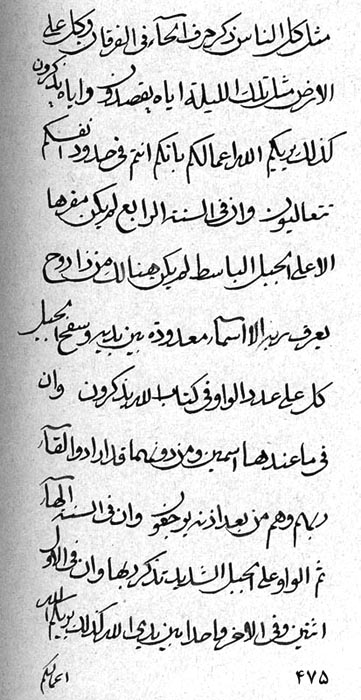 مثل كل الناس ذكرهم فى الحاء فى الفرقان وكل على
الارض مثل تلك الليلة اياه يقصدون واياه يذكرون
كذلك يريكم الله اعمالكم بانكم انتم فى حدود انفسكم
تتعاليون وان فى السنة الرابع لم يكن مقرها
الا على الجبل الباسط لم يكن هنالك من ذا روح
يعرف ربه الا اسماء معدودة بين يديه وسفح الجبل
كل على عدد الواو فى كتاب الله يذكرون وان
فى ما عندها اسمين ومن دونهما قد ارادوا لقاء
ربهم وهم من بعد اذنه يوجعون وان فى السنة الهاء
ثم الواو على الجبل الشديد تذكر ربها وان فى الاول
اثنين وفى الاخر واحدا بين يدي الله كذلك يريكم الله
۴۷۵ اعمالكم